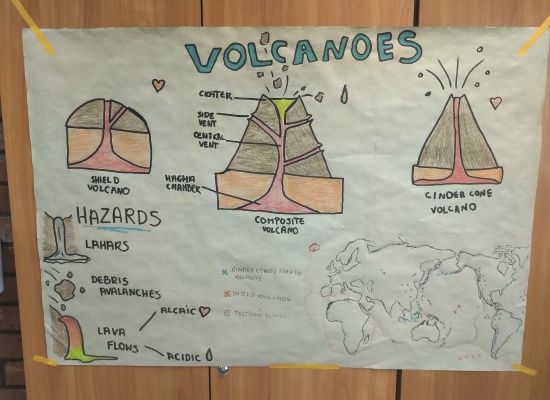 VOLCANOES
CRATER
SIDE
VENT
CENTRAL
VENT
MAGMA
CHAMBER
SHIELD
VOLCANO
COMPOSITE
VOLCANO
CINDER CONE
VOLCANO
HAZARDS
LAHARS
DEBRIS
AVALANCHES
LAVA
FLOWS
ALCALIC
ACIDIC
CINDER CONE / STRATO
SHIELD VOLCANOS
TECTONIC PLATES